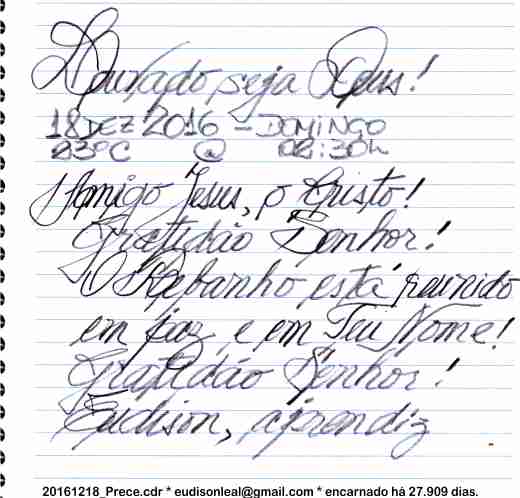 Louvado seja Deus!
18 DEZ 2016 - DOMINGO
23ºC @ 02:30h
Amigo Jesus, o Cristo!
Gratidão Senhor!
O Rebanho está reunido
em paz, e em Teu Nome!
Gratidão Senhor!
Eudison, aprendiz
20161218_Prece.cdr * eudisonleal@gmail.com * encarnado há 27.909 dias.